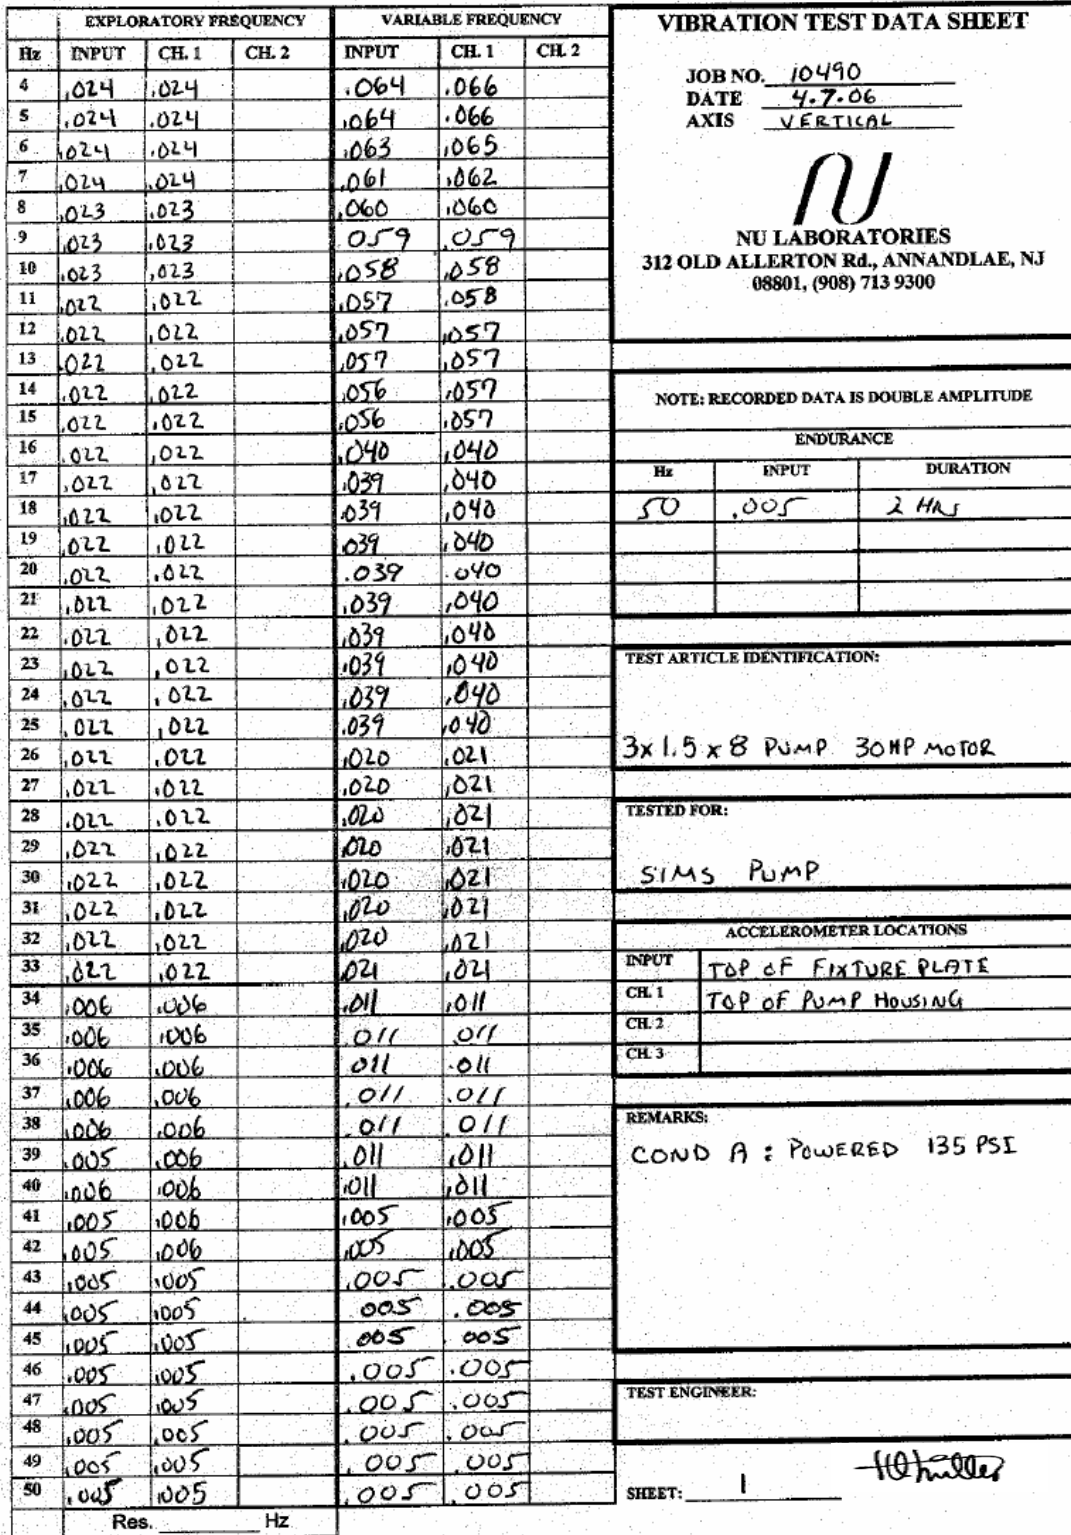 EXPLORATORY FREQUENCY VARIABLE FREQUENCY
Hz INPUT CH. 1 CH. 2 INPUT CH. 1 CH. 2
4 .024 .024 .064 .066
5 .024 .024 .064 .066
6 .024 .024 .063 .065
7 .024 .024 .061 .062
8 .023 .023 .060 .060
9 .023 .023 059 .059
10 .023 .023 .058 .058
11 .022 .022 .057 .058
12 .022 .022 .057 .057
13 .022 .022 .057 .057
14 .022 .022 .056 .057
15 .022 .022 .056 .057
16 .022 .022 .040 .040
17 .022 .022 .039 .040
18 .022 .022 .039 .040
19 .022 .022 .039 .040
20 .022 .022 .039 .040
21 .022 .022 .039 .040
22 .022 .022 .039 .040
23 .022 .022 .039 .040
24 .022 .022 .039 .040
25 .022 .022 .039 .040
26 .022 .022 .020 .021
27 .022 .022 .020 .021
28 .022 .022 .020 .021
29 .022 .022 .020 .021
30 .022 .022 .020 .021
31 .022 .022 .020 .021
32 .022 .022 .020 .021
33 .022 .022 .021 .021
34 .006 .006 .011 .011
35 .006 .006 .011 .011
36 .006 .006 .011 .011
37 .006 .006 .011 .011
38 .006 .006 .011 .011
39 .005 .006 .011 .011
40 .006 .006 .011 .011
41 .005 .006 .005 .005
42 .005 .006 .005 .005
43 .005 .005 .005 .005
44 .005 .005 .005 .005
45 .005 .005 .005 .005
46 .005 .005 .005 .005
47 .005 .005 .005 .005
48 .005 .005 .005 .005
49 .005 .005 .005 .005
50 .005 .005 .005 .005
Res. Hz
VIBRATION TEST DATA SHEET
JOB NO. 10490
DATE 4.7.06
AXIS VERTICAL
NU
NU LABORATORIES
312 OLD ALLERTON Rd., ANNANDLAE, NJ
08801, (908) 713 9300
NOTE: RECORDED DATA IS DOUBLE AMPLITUDE
ENDURANCE
Hz INPUT DURATION
50 .005 2 HRS
TEST ARTICLE IDENTIFICATION:
3x1.5x8 PUMP 30HP MOTOR
TESTED FOR:
SIMS PUMP
ACCELEROMETER LOCATIONS
INPUT TOP OF FIXTURE PLATE
CH. 1 TOP OF PUMP HOUSING
CH. 2
CH. 3
REMARKS:
COND A : POWERED 135 PSI
TEST ENGINEER:
SHEET: 1